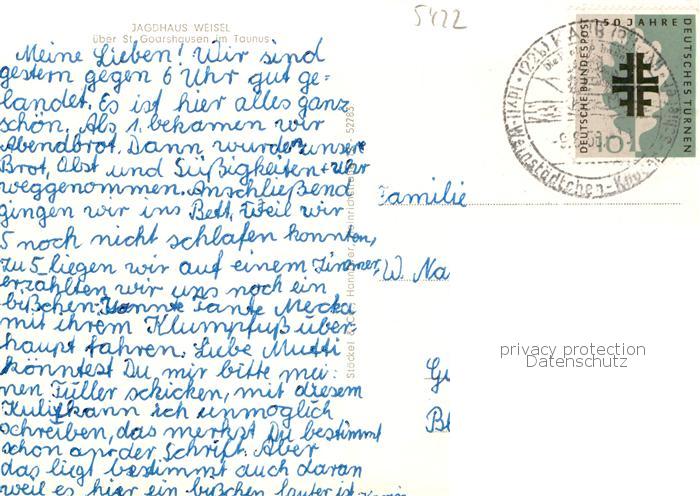 JAGDHAUS WEISEL
über St. Goarshausen im Taunus
Meine Lieben! Wir sind
gestern gegen 6 Uhr gut ge-
landet. Es ist hier alles ganz
schön. Als 1. bekamen wir
Abendbrot. Dann wurde unsere
Brot, Obst und Süßigkeiten + Uhr
weggenommen. Anschließend
gingen wir ins Bett. Weil wir
5 noch nicht schlafen konnten,
zu 5 liegen wir auf einem Zimmer,
erzählten wir uns noch ein
bißchen. Konnte Tante Mecka
mit ihrem Klumpfuß über-
haupt fahren. Liebe Mutti
könntest Du mir bitte mei-
nen Füller schicken, mit diesem
Kuli kann ich unmöglich
schreiben, das merkst Du bestimmt
schon an der Schrift. Aber
das liegt bestimmt auch daran
weil es hier ein bißchen lauter ist.
Stöckel
52785
5422
150 JAHRE
DEUTSCHES TURNEN
DEUTSCHE BUNDESPOST
10
(22b) KAUB
Familie
W. Na
Gu
Bl
privacy protection
Datenschutz